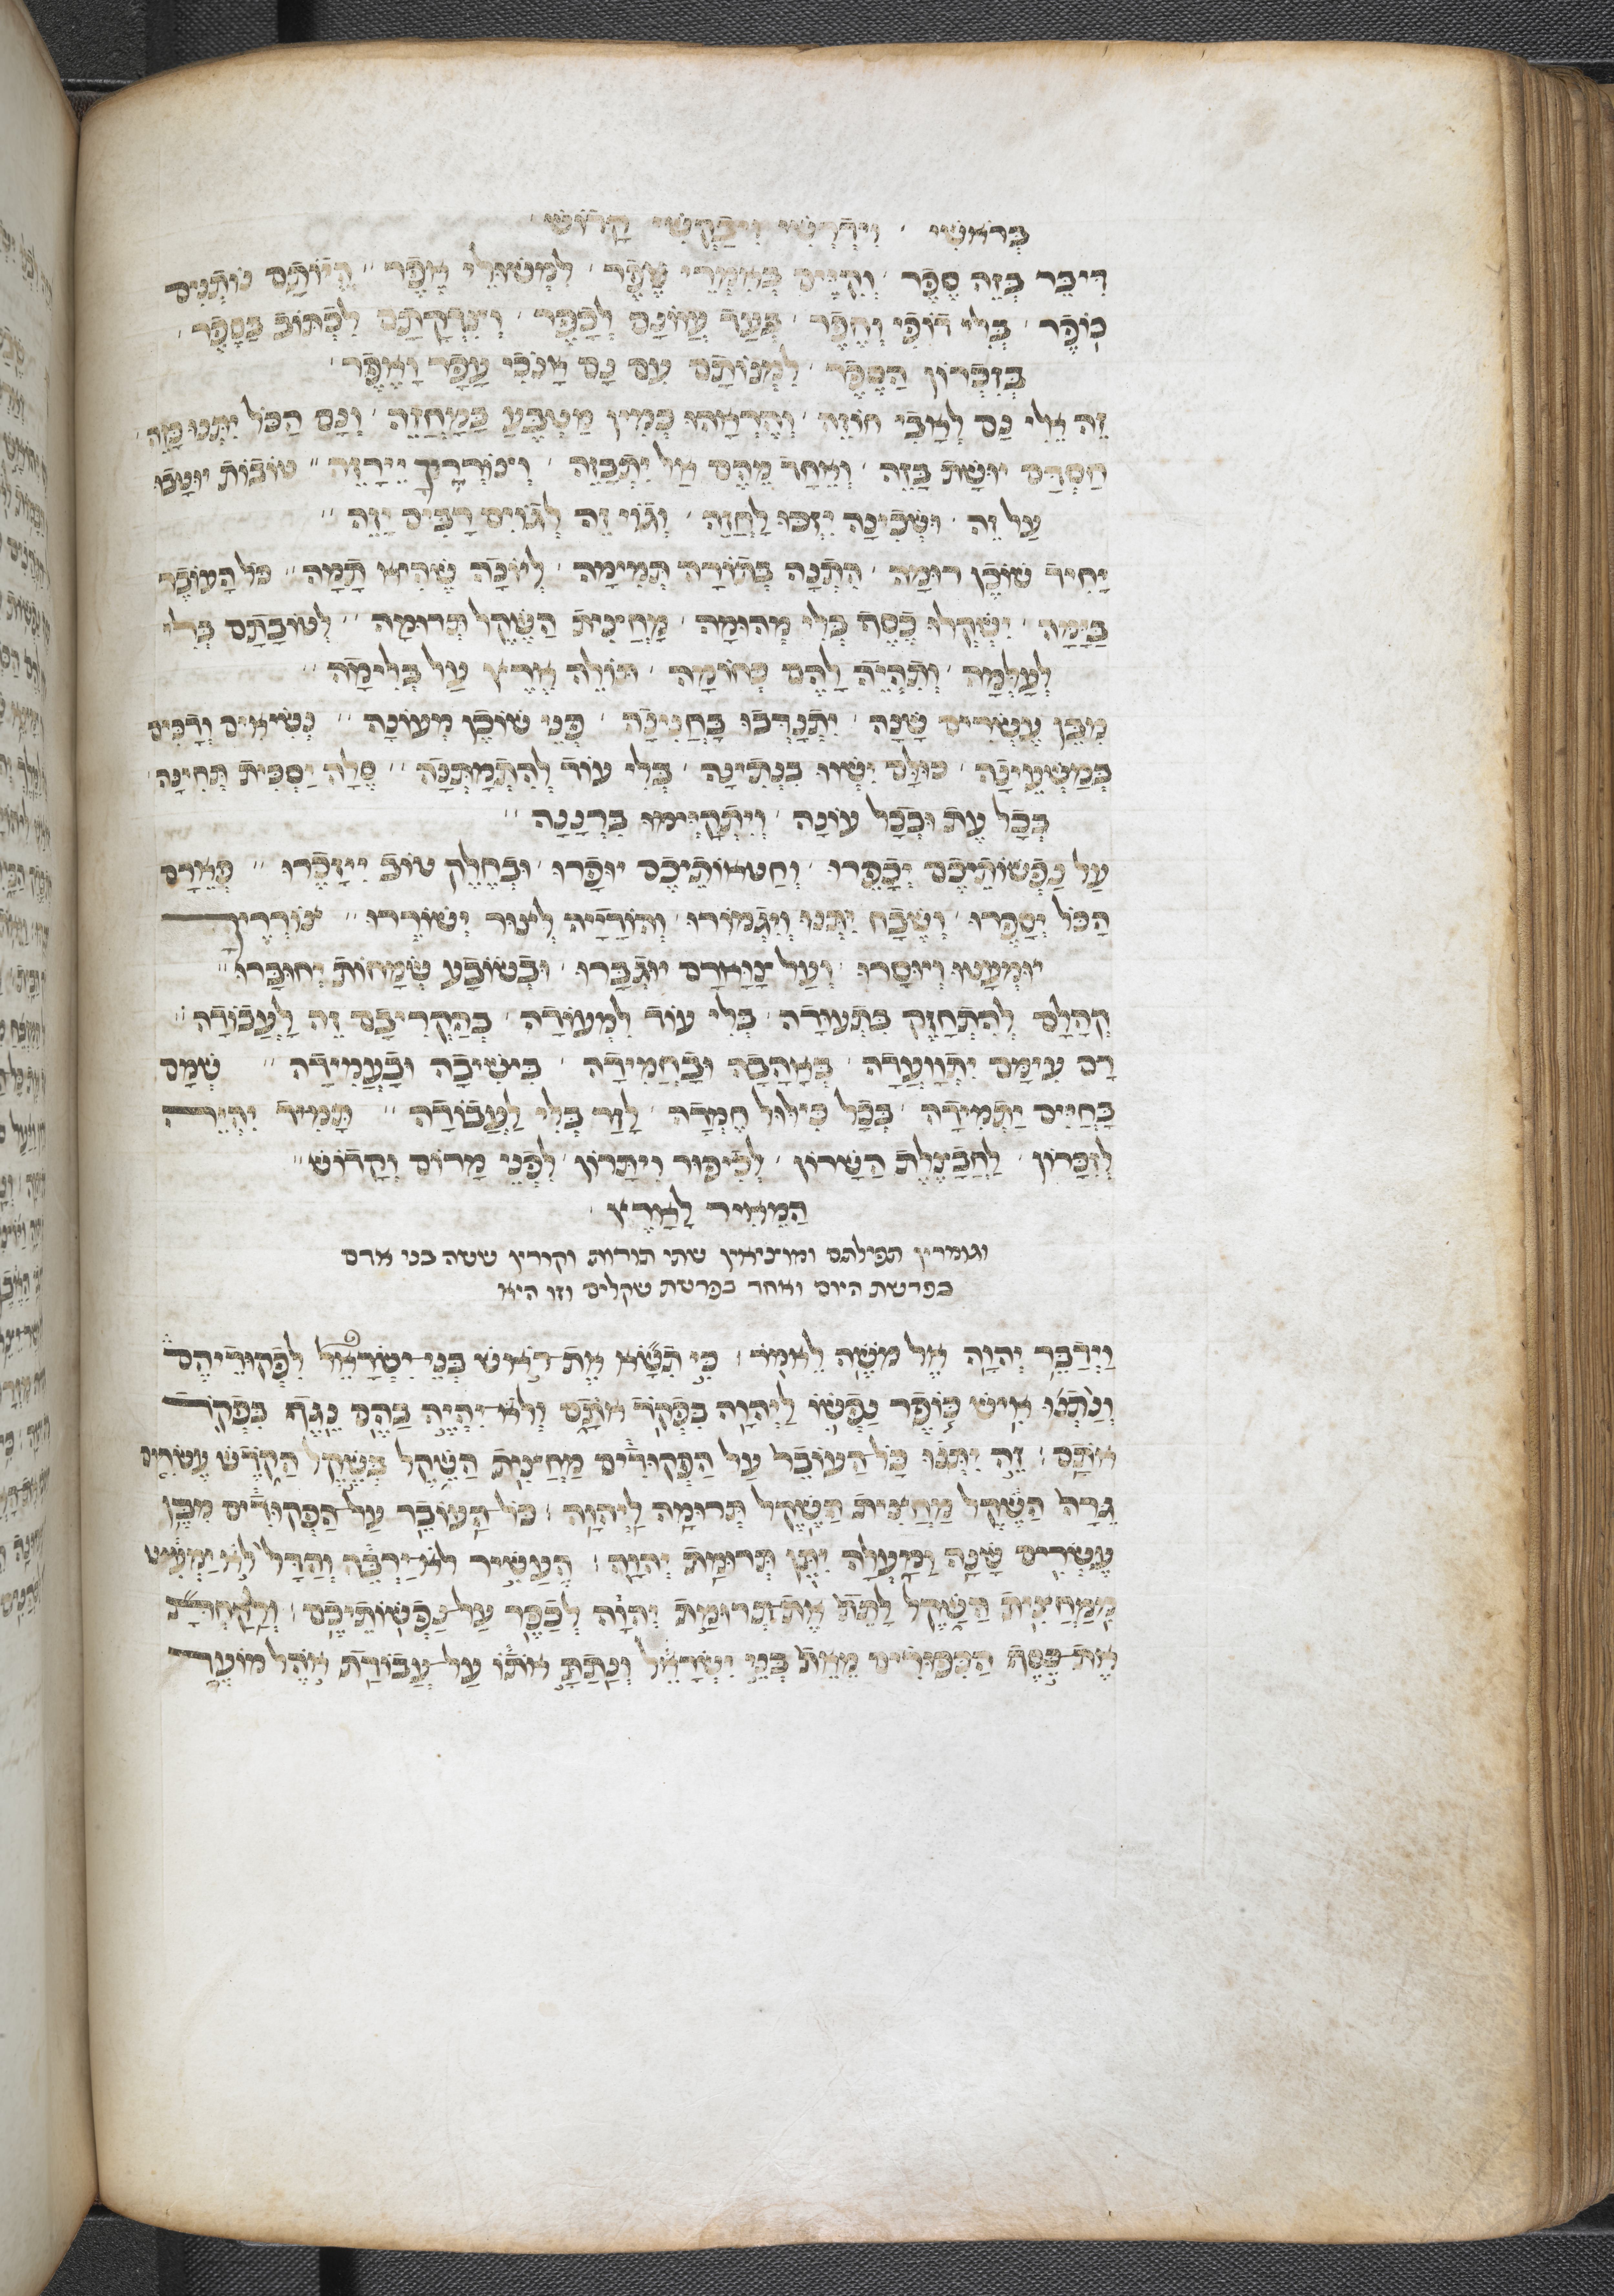 בראשי וידרשו ויבקשו קדוש
דיבר בזה ספר וקיים באמרי שפר למשולי אפר היותם נותנים
כופר בלי דופי וחפר בעד עונם לכפר וצדקתם לכתוב בספר
בזכרון הספר למנותם עם נם אנכי עפר ואפר
זה אלי נם לאבי חוזה והראהו כמין מטבע במחזה ונם הכל יתנו מזה
חסדם יושת בזה ואחד מהם אל יתבזה וצורריך ייזה טובות יוטבו
על זה ושכינה יזכו לחזה וגוי זה לגוים רבים יזה
יחיד שוכן רומה התנה בתורה תמימה ליונה שהיא תמה כל העובר
בימה ישקלו כסף בלי מהומה מחצית השקל תרומה לטובתם בלי
לעלמה ותהיה להם כחומה תולה ארץ על בלימה
מבן עשרים שנה יתנדבו בחנינה פני שוכן מעונה נשיאים ודכים
במשעינה כולם ישוו בנתינה בלי עוד להתמתנה סלה יסכית תחינה
בכל עת ובכל עונה ויתקיימו ברננה
על נפשותיכם יכפרו וחטאותיכם יופרו ובחלק טוב ייזכרו פארם
הכל יספרו ושבח יתנו ויגמורו והודייה לצור ישוררו צורריך
יומעטו ויוסרו ועל צוארם יוגברו ובשובע שמחות יחוברו
קהלם להתחזק בתעודה בלי עוד למעודה בהקריבם זה לעבודה
רם עימם יתוועדה באהבה ובחמידה בישיבה ובעמידה שמם
בחיים יתמידה בכל כילול חמדה לצד בלי לעבודה תמיד יהיה
לזכרון לחבצלת השרון לכיפור ויתרון לפני מרום וקדוש
המאיר לארץ
וגומרין תפילתם ומוציאין שתי תורות וקורין ששה בני אדם
בפרשת היום ואחד בפרשת שקלים וזו היא
וידבר יהוה אל משה לאמר כי תשא את ראש בני ישראל לפקודיהם
ונתנו איש כופר נפשו ליהוה בפקד אתם ולא יהיה בהם נגף בפקד
אותם זה יתנו כל העובר על הפקודים מחצית השקל בשקל הקדש עשרים
גרה השקל מחצית השקל תרומה ליהוה כל העובר על הפקודים מבן
עשרים שנה ומעלה יתן תרומת יהוה העשיר לא ירבה והדל לא ימעיט
ממחצית השקל לתת את תרומת יהוה לכפר על נפשותיכם ולקחת
את כסף הכפורים מאת בני ישראל ונתת אותו על עבודת אהל מועד